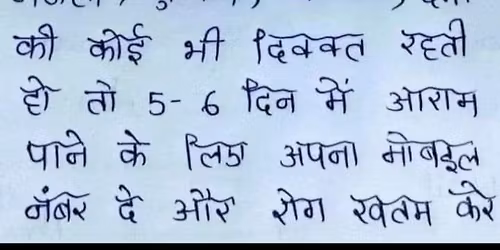 की कोई भी दिक्कत रहती
हो तो 5-6 दिन में आराम
पाने के लिए अपना मोबइल
नंबर दे और रोग खतम करे